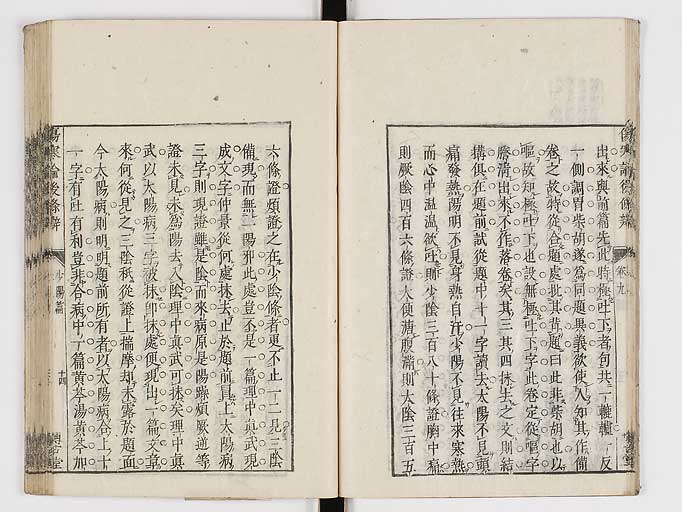 出來與前篇先此時極吐下者句共二轆轤一反
一側謂胃柴胡遂爲同題異義欲使人知其作備
卷之故特從合題處批其背題曰此非柴胡也以
嘔故知極吐下也設無極吐下字此卷定從嘔字
謄清出來不作落卷矣其三其四抹生之文則結
構俱在題前試從題中十一字讀去太陽不見頭
痛發熱陽明不見身熱自汗少陽不見往來寒熱
而心中温温欲吐則少陰三百八十條證胸中痛
則厥陰四百六條證大便溏腹滿則太陰三百五
卷九
六條證煩證之在少陰條者更不止一二見三陰
備現而無二陽邪此處豈不是一篇理中真武現
成文字仲景從何處抹去止於題前冒上太陽病
三字則現證雖是陰而來病原是陽縣煩厥逆等
證未見未爲陽去入陰理中真武可抹矣理中真
武以太陽病三字被抹卽抹處便現出一篇文章
來何從見之三陰秖從證上揣摩却未露於題面
今太陽病則明明題前所有者以太陽病合上十
一字有吐有利豈非合病中一篇黃芩湯黃芩加
傷寒論後條辨
少陽篇
十四